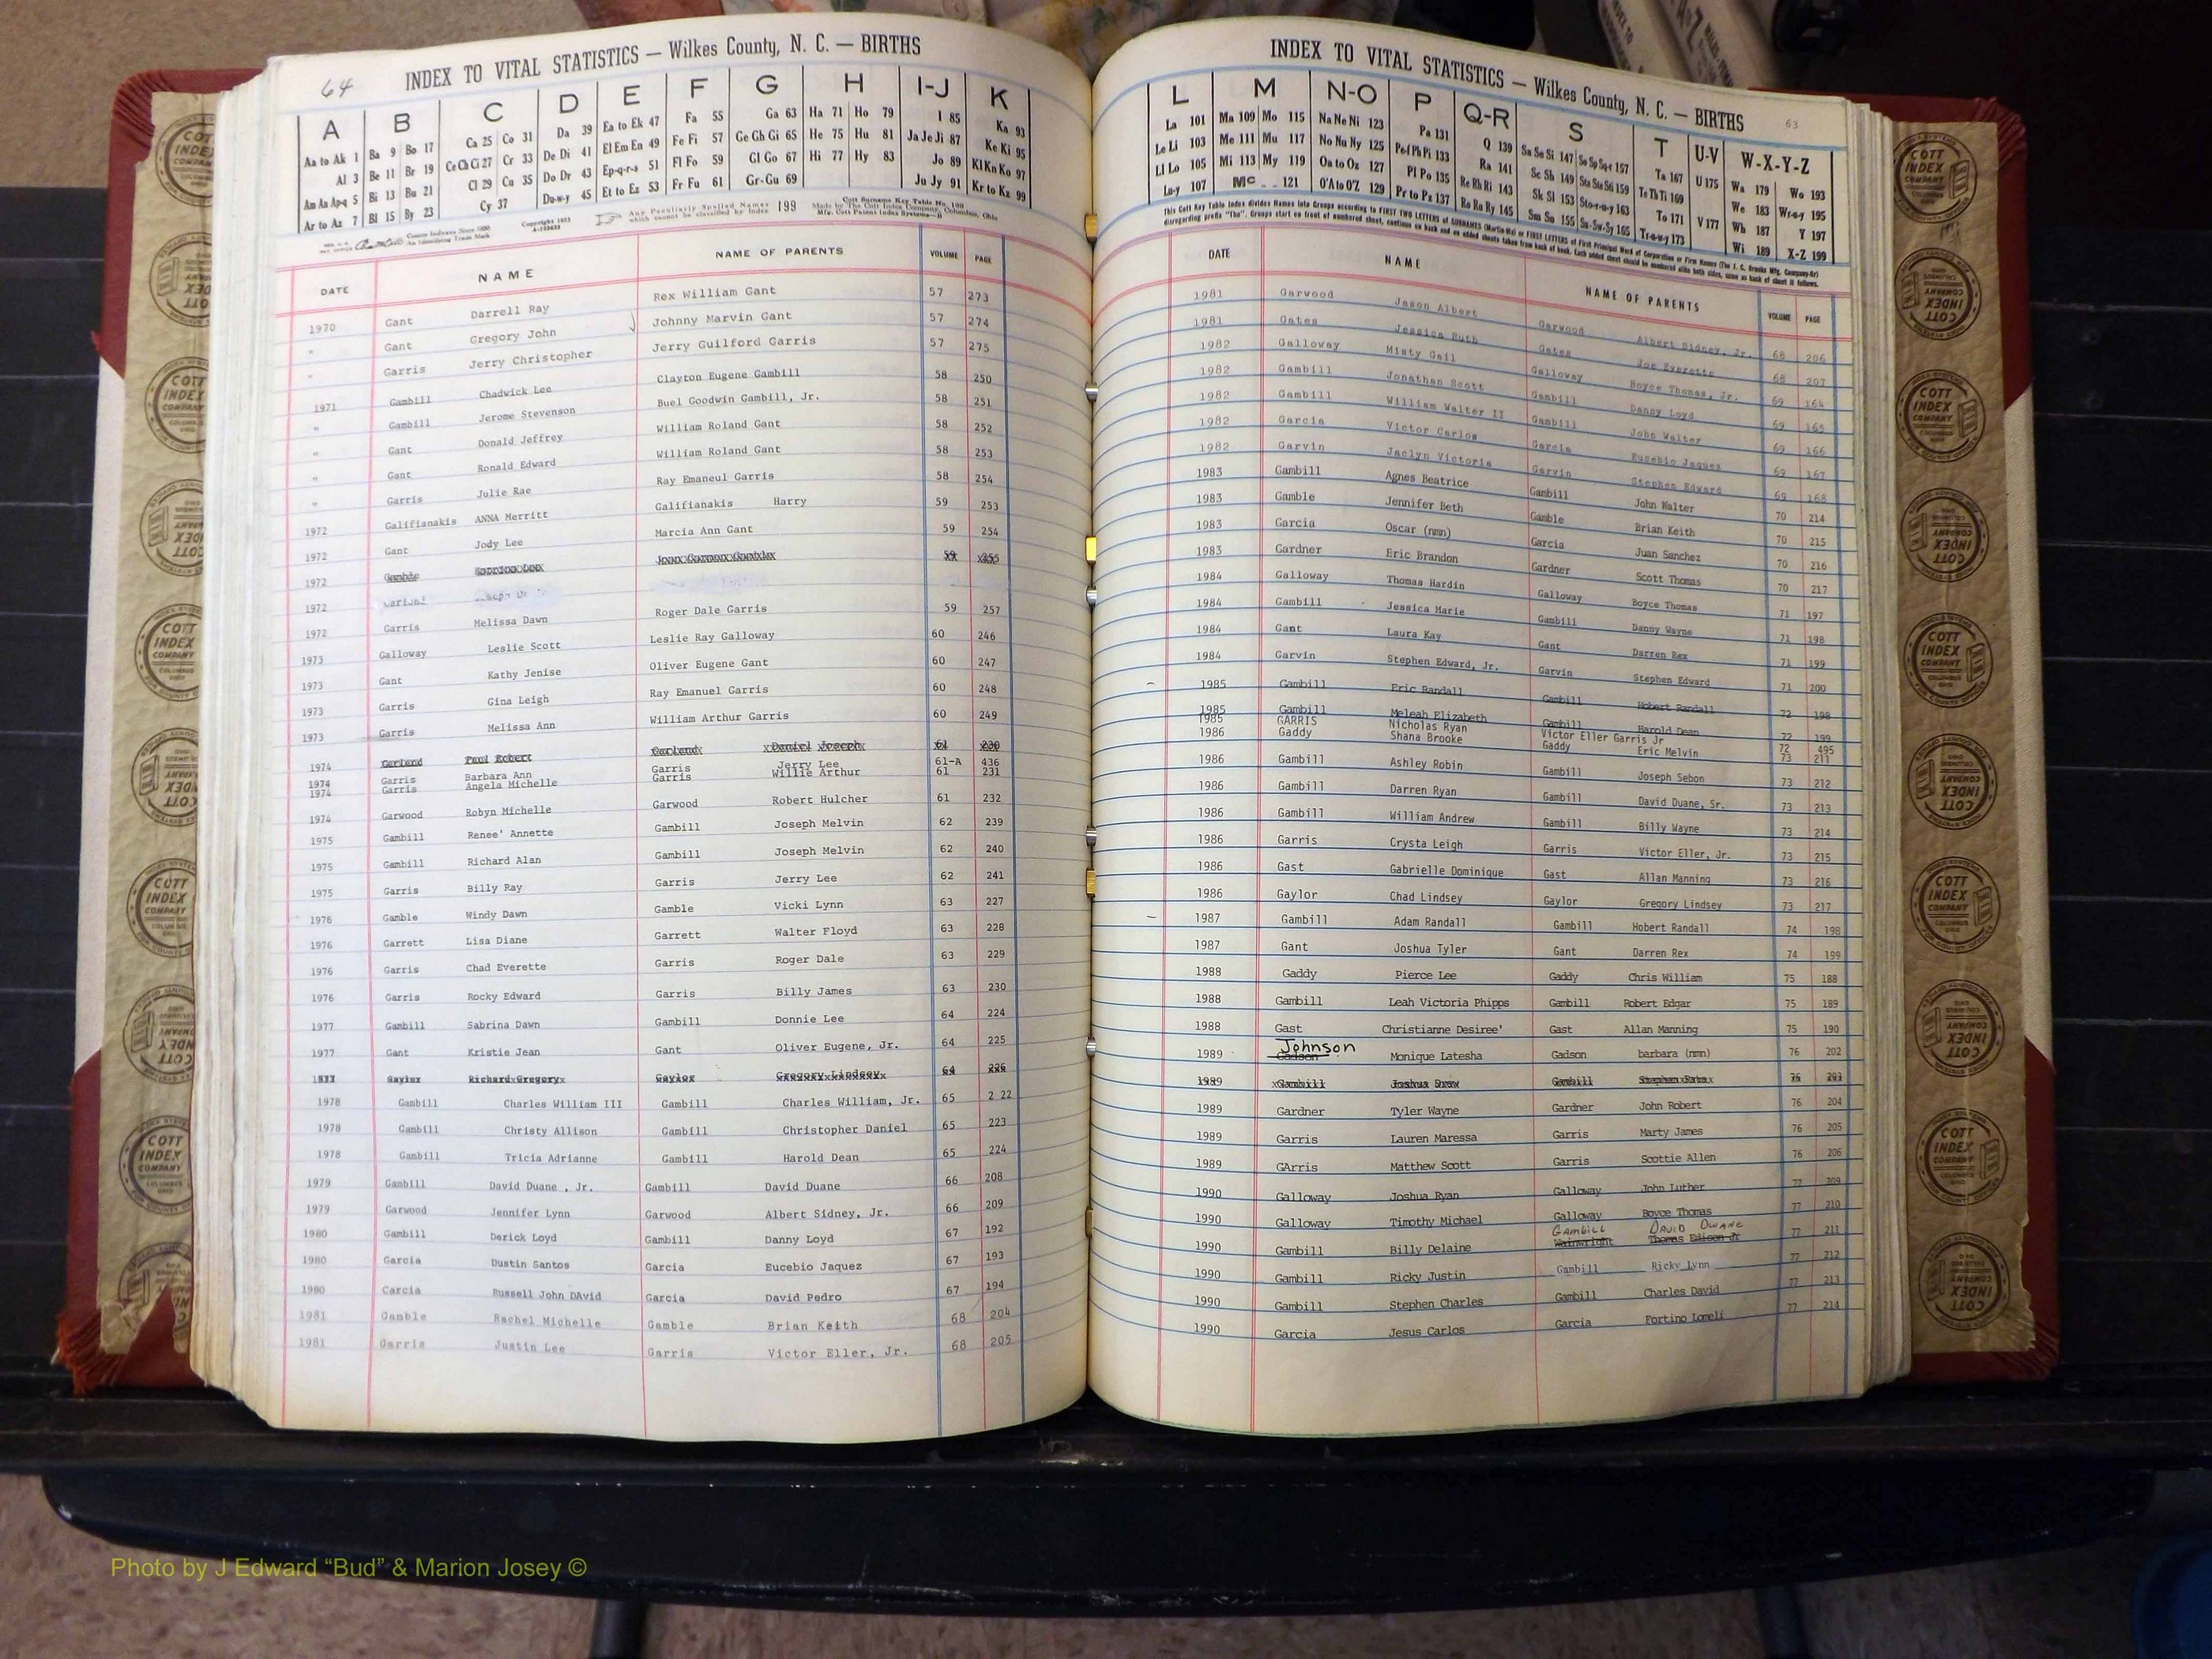 64
INDEX TO VITAL STATISTICS — Wilkes County, N. C. — BIRTHS
A B C D E F G H I-J K
Aa to Ak 1 Ba 9 Bo 17 Ca 25 Co 31 Da 39 Ea to Ek 47 Fa 55 Ga 63 Ha 71 Ho 79 I 85 Ka 93
Al 3 Be 11 Br 19 Ce Ch Ci 27 Cr 33 De Di 41 El Em En 49 Fe Fi 57 Ge Gh Gi 65 He 75 Hu 81 Ja Je Ji 87 Ke Ki 95
Am An Ap-q 5 Bi 13 Bu 21 Cl 29 Cu 35 Do Dr 43 Ep-q-r-s 51 Fl Fo 59 Gl Go 67 Hi 77 Hy 83 Jo 89 Kl Kn Ko 97
Ar to Az 7 Bl 15 By 23 Cy 37 Du-w-y 45 Et to Ez 53 Fr Fu 61 Gr-Gu 69 Ju Jy 91 Kr to Kz 99
Any Peculiarly Spelled Names which cannot be classified by Index 199
DATE NAME NAME OF PARENTS VOLUME PAGE
1970 Gant Darrell Ray Rex William Gant 57 273
" Gant Gregory John Johnny Marvin Gant 57 274
" Garris Jerry Christopher Jerry Guilford Garris 57 275
1971 Gambill Chadwick Lee Clayton Eugene Gambill 58 250
" Gambill Jerome Stevenson Buel Goodwin Gambill, Jr. 58 251
" Gant Donald Jeffrey William Roland Gant 58 252
" Gant Ronald Edward William Roland Gant 58 253
" Garris Julie Rae Ray Emaneul Garris 58 254
1972 Galifianakis ANNA Merritt Galifianakis Harry 59 253
1972 Gant Jody Lee Marcia Ann Gant 59 254
1972 Gamble 59 255
1972
1972 Garris Melissa Dawn Roger Dale Garris 59 257
1973 Galloway Leslie Scott Leslie Ray Galloway 60 246
1973 Gant Kathy Jenise Oliver Eugene Gant 60 247
1973 Garris Gina Leigh Ray Emanuel Garris 60 248
1973 Garris Melissa Ann William Arthur Garris 60 249
1974 Garland Paul Robert Garland Daniel Joseph 61 230
1974 Garris Barbara Ann Garris Jerry Lee 61-A 436
1974 Garris Angela Michelle Garris Willie Arthur 61 231
1974 Garwood Robyn Michelle Garwood Robert Hulcher 61 232
1975 Gambill Renee' Annette Gambill Joseph Melvin 62 239
1975 Gambill Richard Alan Gambill Joseph Melvin 62 240
1975 Garris Billy Ray Garris Jerry Lee 62 241
1976 Gamble Windy Dawn Gamble Vicki Lynn 63 227
1976 Garrett Lisa Diane Garrett Walter Floyd 63 228
1976 Garris Chad Everette Garris Roger Dale 63 229
1976 Garris Rocky Edward Garris Billy James 63 230
1977 Gambill Sabrina Dawn Gambill Donnie Lee 64 224
1977 Gant Kristie Jean Gant Oliver Eugene, Jr. 64 225
1977 Gaylor Richard Gregory Gaylor Gregory Lindsey 64 226
1978 Gambill Charles William III Gambill Charles William, Jr. 65 2 22
1978 Gambill Christy Allison Gambill Christopher Daniel 65 223
1978 Gambill Tricia Adrianne Gambill Harold Dean 65 224
1979 Gambill David Duane , Jr. Gambill David Duane 66 208
1979 Garwood Jennifer Lynn Garwood Albert Sidney, Jr. 66 209
1980 Gambill Derick Loyd Gambill Danny Loyd 67 192
1980 Garcia Dustin Santos Garcia Eucebio Jaquez 67 193
1980 Carcia Russell John DAvid Garcia David Pedro 67 194
1981 Gamble Rachel Michelle Gamble Brian Keith 68 204
1981 Garris Justin Lee Garris Victor Eller, Jr. 68 205
INDEX TO VITAL STATISTICS — Wilkes County, N. C. — BIRTHS
63
L M N-O P Q-R S T U-V W-X-Y-Z
La 101 Ma 109 Mo 115 Na Ne Ni 123 Pa 131 Q 139 Sa Se Si 147 So Sp Sq-r 157 Ta 167 U 175 Wa 179 Wo 193
Le Li 103 Me 111 Mu 117 No Nu Ny 125 Pe-f Ph Pi 133 Ra 141 Sc Sh 149 Sta Ste Sti 159 Te Th Ti 169 We 183 Wr-u-y 195
Ll Lo 105 Mi 113 My 119 Oa to Oz 127 Pl Po 135 Re Rh Ri 143 Sk Sl 153 Sto-r-u-y 163 To 171 V 177 Wh 187 Y 197
Lu-y 107 Mc 121 O'A to O'Z 129 Pr to Pz 137 Ro Ru Ry 145 Sm Sn 155 Su-Sw-Sy 165 Tr-u-w-y 173 Wi 189 X-Z 199
DATE NAME NAME OF PARENTS VOLUME PAGE
1981 Garwood Jason Albert Garwood Albert Sidney, Jr. 68 206
1981 Gates Jessica Ruth Gates Joe Everette 68 207
1982 Galloway Misty Gail Galloway Boyce Thomas, Jr. 69 164
1982 Gambill Jonathan Scott Gambill Danny Loyd 69 165
1982 Gambill William Walter II Gambill John Walter 69 166
1982 Garcia Victor Carlos Garcia Eusebio Jaquez 69 167
1982 Garvin Jaclyn Victoria Garvin Stephen Edward 69 168
1983 Gambill Agnes Beatrice Gambill John Walter 70 214
1983 Gamble Jennifer Beth Gamble Brian Keith 70 215
1983 Garcia Oscar (nmn) Garcia Juan Sanchez 70 216
1983 Gardner Eric Brandon Gardner Scott Thomas 70 217
1984 Galloway Thomas Hardin Galloway Boyce Thomas 71 197
1984 Gambill Jessica Marie Gambill Danny Wayne 71 198
1984 Gant Laura Kay Gant Darren Rex 71 199
1984 Garvin Stephen Edward, Jr. Garvin Stephen Edward 71 200
1985 Gambill Eric Randall Gambill Hobert Randall 72 198
1985 Gambill Meleah Elizabeth Gambill Harold Dean 72 199
1985 GARRIS Nicholas Ryan Victor Eller Garris Jr 72 495
1986 Gaddy Shana Brooke Gaddy Eric Melvin 73 211
1986 Gambill Ashley Robin Gambill Joseph Sebon 73 212
1986 Gambill Darren Ryan Gambill David Duane, Sr. 73 213
1986 Gambill William Andrew Gambill Billy Wayne 73 214
1986 Garris Crysta Leigh Garris Victor Eller, Jr. 73 215
1986 Gast Gabrielle Dominique Gast Allan Manning 73 216
1986 Gaylor Chad Lindsey Gaylor Gregory Lindsey 73 217
1987 Gambill Adam Randall Gambill Hobert Randall 74 198
1987 Gant Joshua Tyler Gant Darren Rex 74 199
1988 Gaddy Pierce Lee Gaddy Chris William 75 188
1988 Gambill Leah Victoria Phipps Gambill Robert Edgar 75 189
1988 Gast Christianne Desiree' Gast Allan Manning 75 190
Johnson
1989 Gadson Monique Latesha Gadson barbara (nmn) 76 202
1989 Gambill Joshua Drew Gambill Stephen 76 203
1989 Gardner Tyler Wayne Gardner John Robert 76 204
1989 Garris Lauren Maressa Garris Marty James 76 205
1989 GArris Matthew Scott Garris Scottie Allen 76 206
1990 Galloway Joshua Ryan Galloway John Luther 77 209
1990 Galloway Timothy Michael Galloway Boyce Thomas 77 210
GAMBILL DAVID DWANE
1990 Gambill Billy Delaine Wainwright Thomas Edison Jr 77 211
1990 Gambill Ricky Justin Gambill Ricky Lynn 77 212
1990 Gambill Stephen Charles Gambill Charles David 77 213
1990 Garcia Jesus Carlos Garcia Fortino Loreli 77 214
Photo by J Edward “Bud” & Marion Josey ©